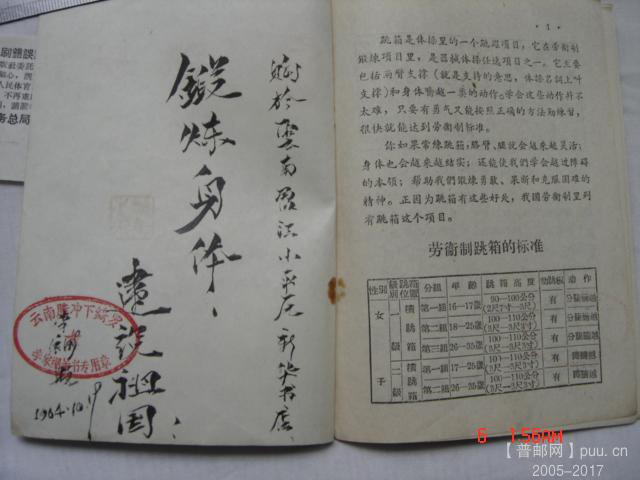 刷體誤
购於雲南盈江小平原新华书店
鍛炼身体，
建设祖国！
1964.10.19
云南腾冲下绮罗
专用章
·1·
跳箱是体操里的一个跳跃项目，它在劳衛制
鍛煉项目里，是器械体操任选项目之一。它主要
包括两臂支撑（就是支持的意思，体操名詞上叫
支撑）和身体腾越一类的动作。学会这些动作并不
太难，只要有勇气又能按照正确的方法勤練习，
很快就能达到劳衛制标准。
你如果常練跳箱，胳臂、腿就会越来越灵活；
身体也会越来越結实；还能使我們学会越过障碍
的本領；帮助我們鍛煉勇敢、果断和克服困难的
精神。正因为跳箱有这些好处，我国劳衛制里列
有跳箱这个项目。
劳衛制跳箱的标准
性别 級别 跳箱位置 分組 年齡 跳箱高度 助跳板 动作
女子
一級 横跳箱 第一組 16—17歲 90—100公分(2尺7寸—3尺) 有 分腿腾越
第二組 18—25歲 100—110公分(3尺—3尺3寸) 有 分腿腾越
第三組 26—35歲 100—110公分(3尺—3尺3寸) 有 分腿腾越
二級 横跳箱 第一組 16—25歲 100—110公分(3尺—3尺3寸) 有
第二組 26—35歲 100—110公分(3尺—3尺3寸) 有
6 1:56AM
【普邮网】puu.cn
2005-2017